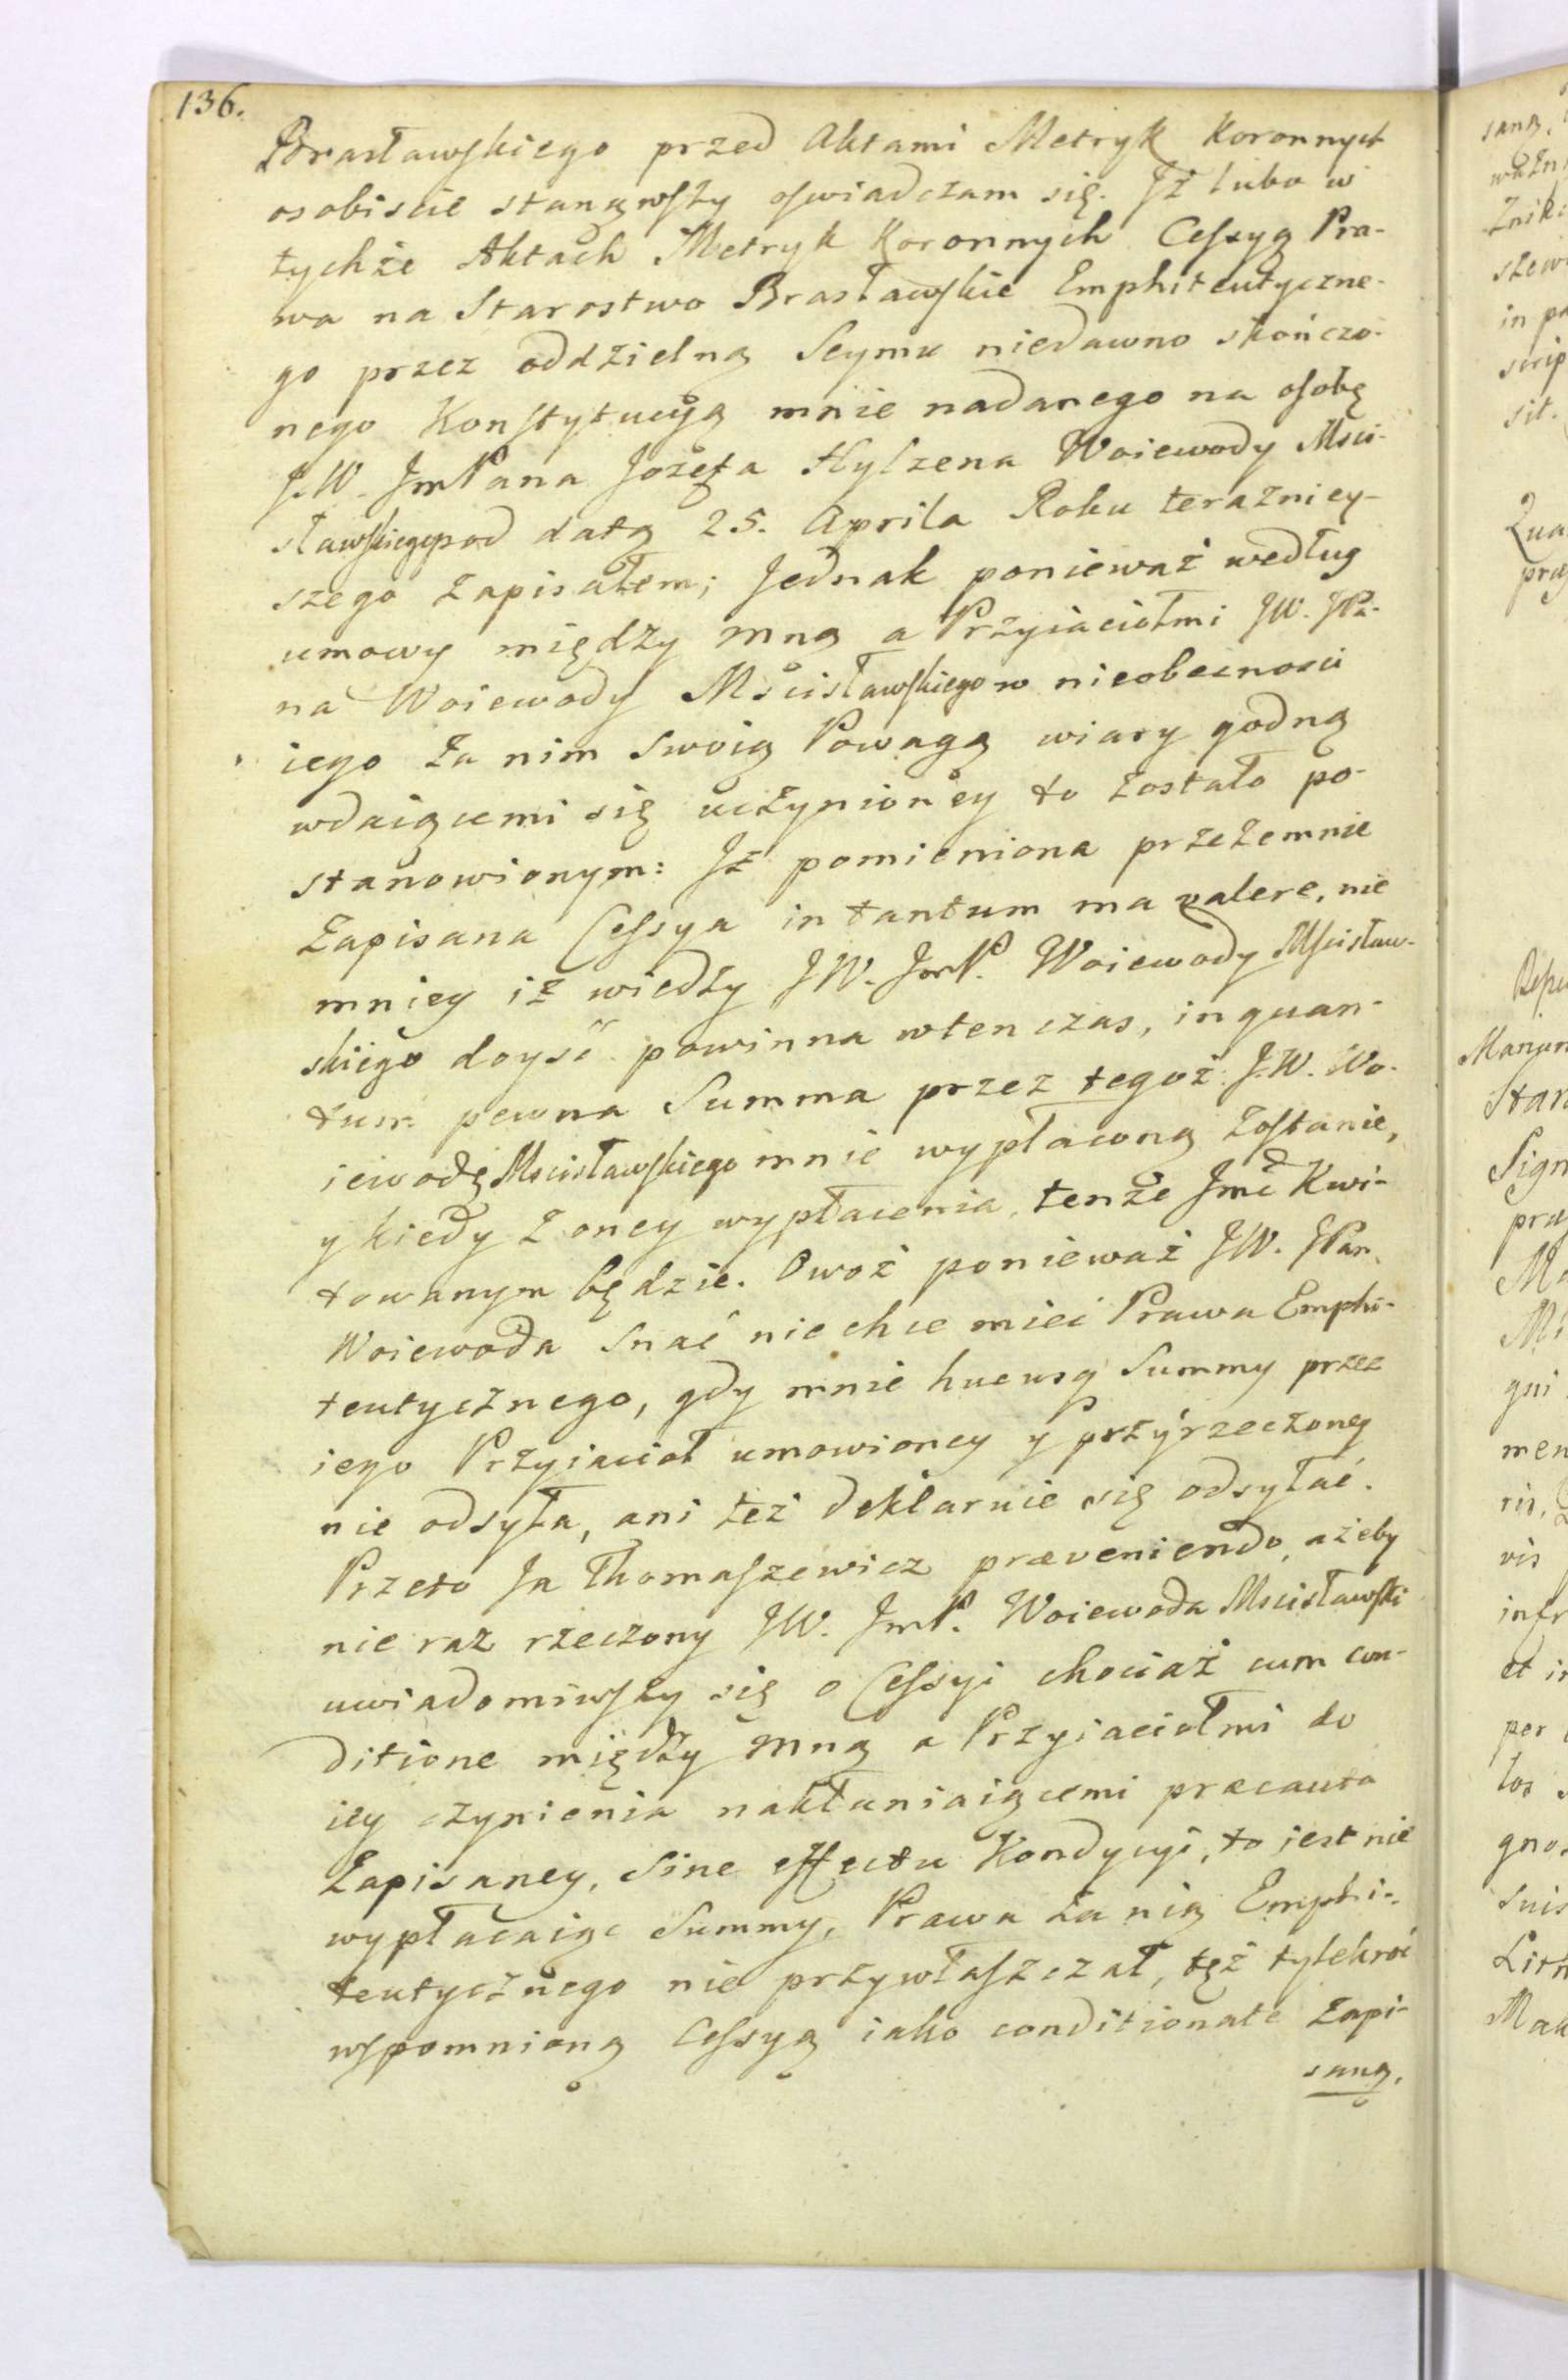 136.
Brasławskiego przed Aktami Metryk Koronnych
osobiscie stanąwszy oswiadczam się. Jż lubo w
tychże Aktach Metryk Koronnych Cessyą Pra-
wa na Starostwo Brasławskie Emphiteutyczne-
go przez oddzielną Seymu niedawno skończo-
nego Konstytucyą mnie nadanego na osobę
J.W. JmPana Jozefa Hylzena Woiewody Msci-
sławskiego pod datą 25. Aprila Roku teraźniey-
szego zapisałem; Jednak ponieważ według
umowy między mną a Przyiaciołmi JW. JPa-
na Woiewody Mścisławskiego w nieobecnosci
iego za nim swoią Powagą wiary godną
wdaiącemi się uczynioney to zostało po-
stanowionym: Jż pomieniona przezemnie
Zapisana Cessya in tantum ma valere, nie
mniey iż wiedzy JW. JmP. Woiewody Mscisław-
skiego doyść powinna wtenczas, in quan-
tum pewna Summa przez tegoż J.W. Wo-
iewodę Mscisławskiego mnie wypłaconą zostanie,
y kiedy z oney wypłacenia tenże Jmć Kwi-
towanym będzie. Owoż ponieważ JW. JPan
Woiewoda snać nie chce mieć Prawa Emphi-
teutycznego, gdy mnie hucusq Summy przez
iego Przyiacioł umowioney y przyrzeczoney
nie odsyła, ani też deklaruie się odsyłać.
Przeto Ja Thomaszewicz præveniendo, ażeby
nie raz rzeczony JW. JmP. Woiewoda Mscisławski
uwiadomiwszy się o Cessyi chociaż cum con-
ditione między mną a Przyiaciołmi do
iey czynienia nakłaniaiącemi præcauta
Zapisaney, sine effectu Kondycyi, to iest nie
wypłacaiąc Summy, Prawa za nią Emphi-
teutycznego nie przywłaszczał, tęż tylekroć
wspomnioną Cessyą iako conditionate Zapi-
saną,